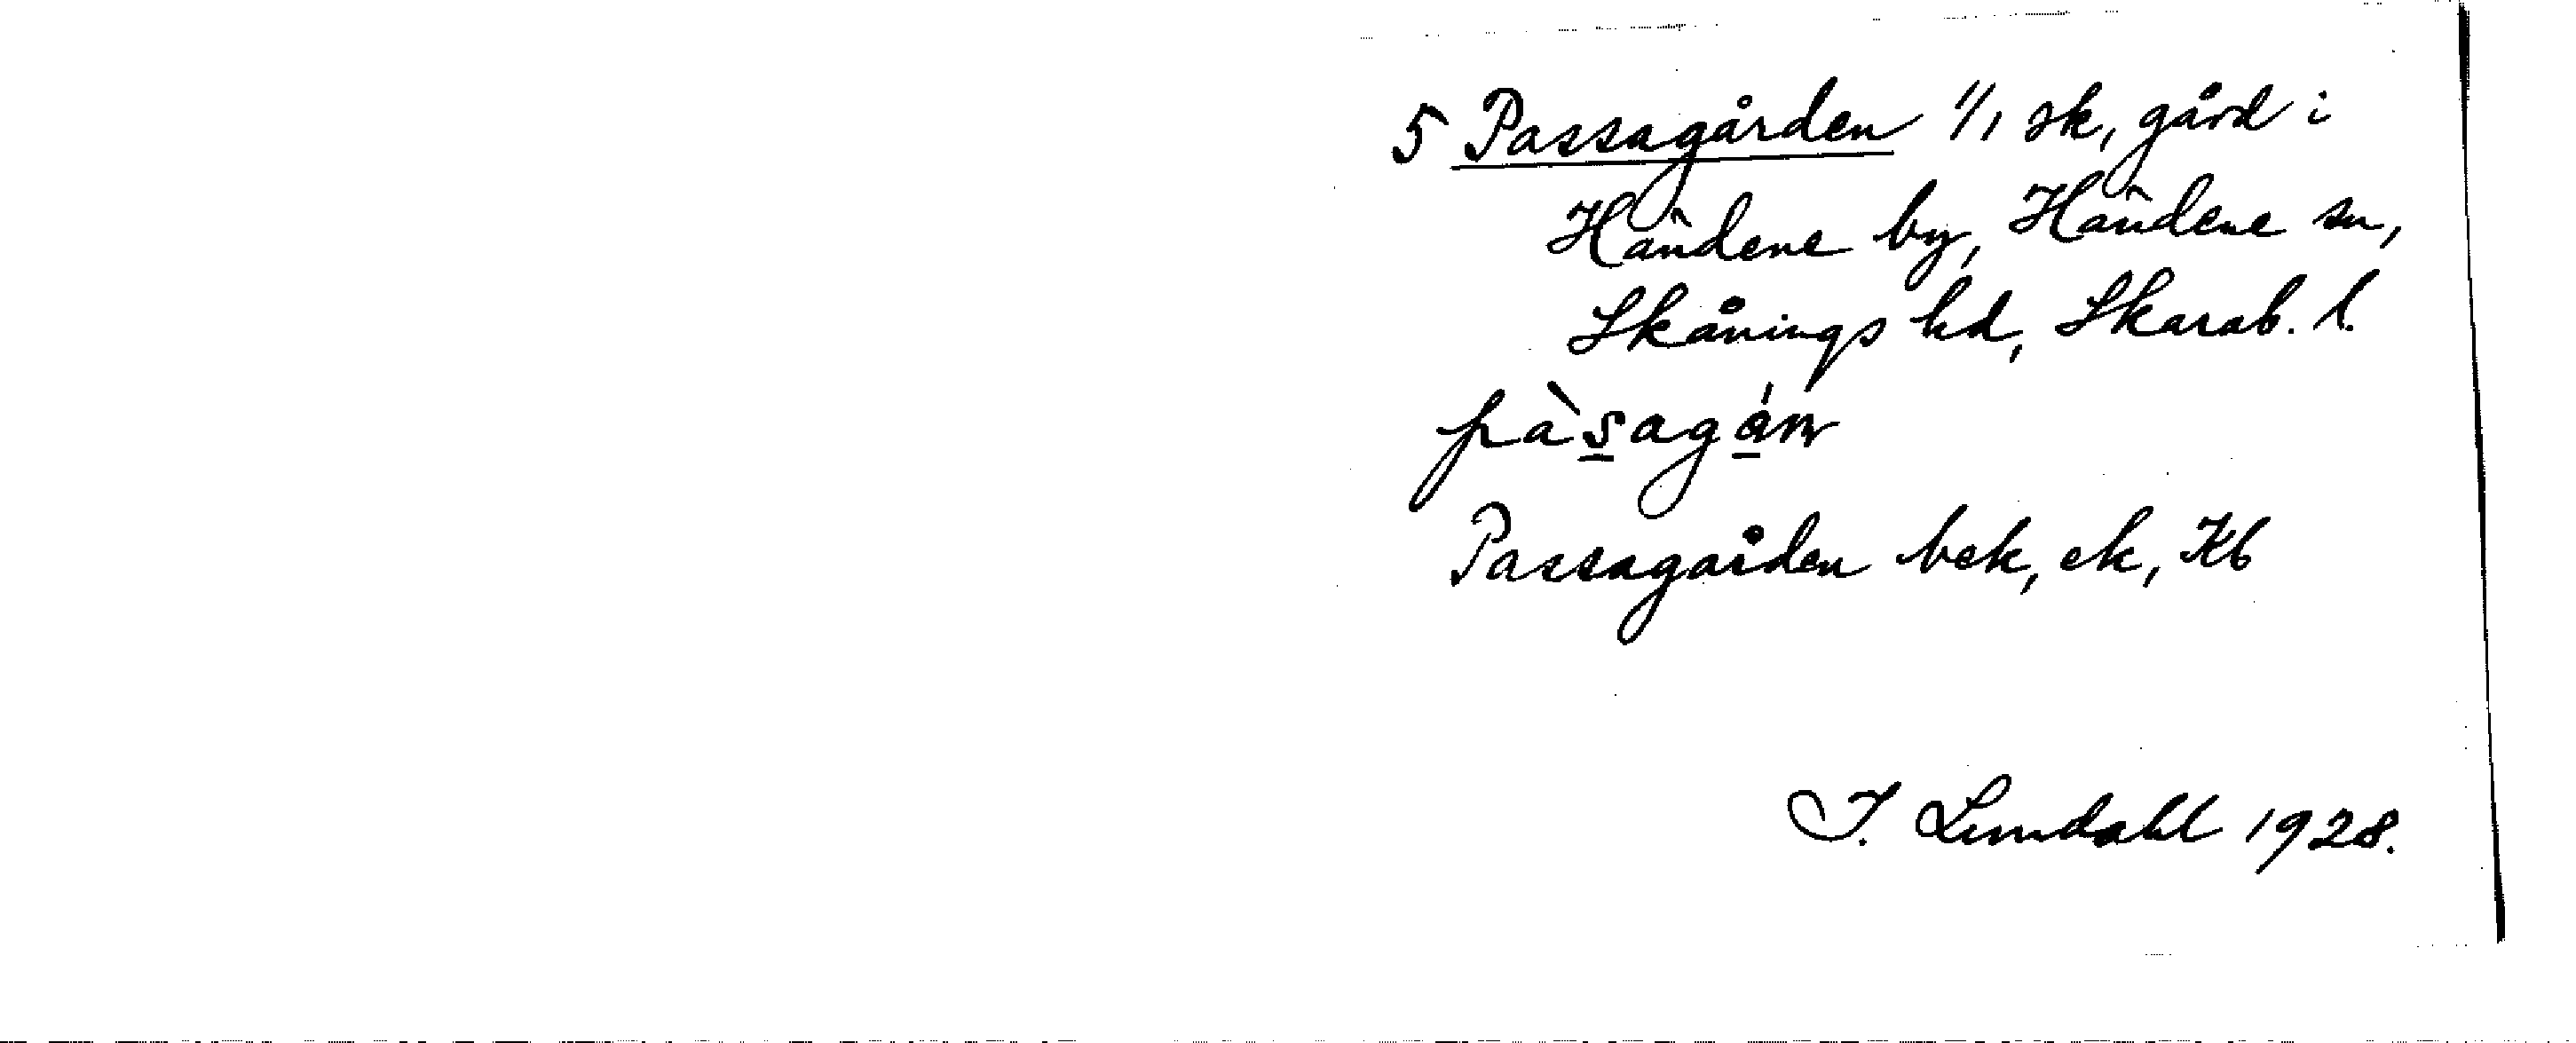 5 Passagården 1/1 sk, gård i
Händene by, Händene sn,
Skånings hd, Skarab. l.
pàsagán
Passagården bek, ek, Kb
I. Lundahl 1928.